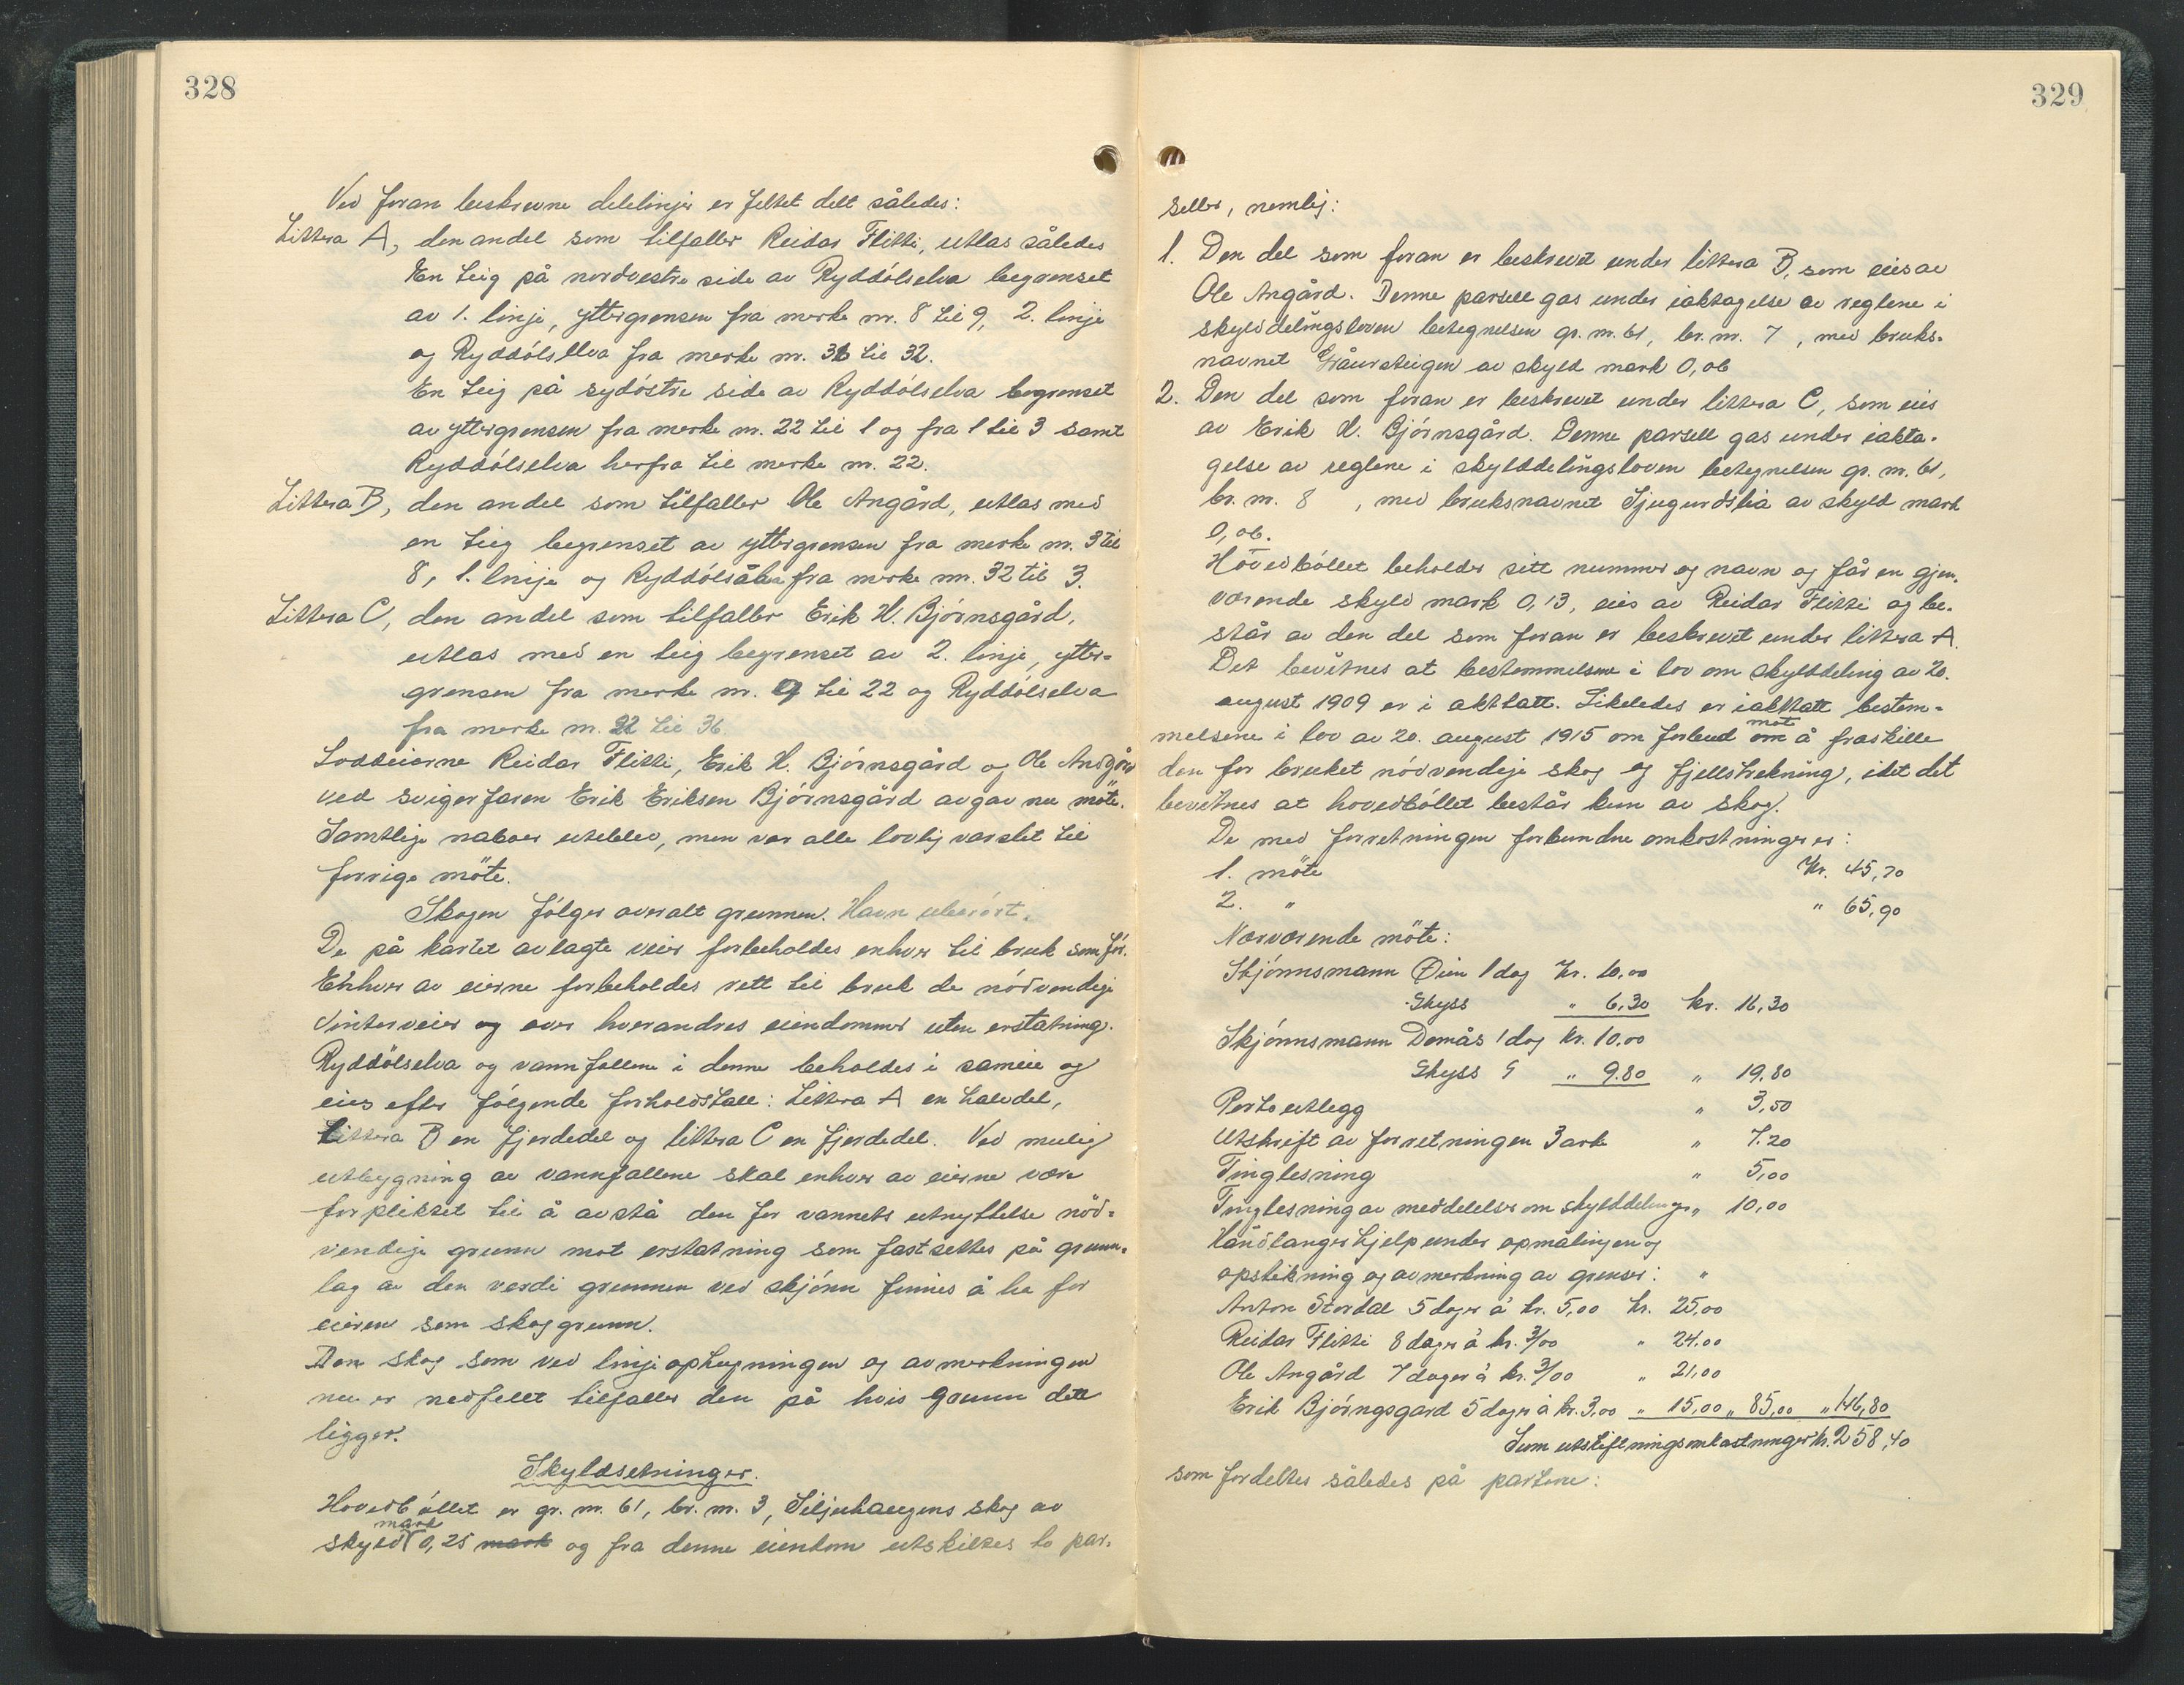 328
Ved foran beskrevne delelinjer er feltet delt således:
Littera A, den andel som tilfaller Reidar Flitti, utlas således
En teig på nordvestre side av Ryddölselva begrenset
av 1. linje, yttergrensen fra merke nr. 8 til 9, 2. linje
og Ryddölsellva fra merke nr. 36 til 32.
En teig på sydöstre side av Ryddölselva begrenset
av yttergrensen fra merke nr. 22 til 1 og fra 1 til 3 samt
Ryddölselva herfra til merke nr. 22.
Littera B, den andel som tilfaller Ole Angård, utlas med
en teig begrenset av yttergrensen fra merke nr. 3 til
8, 1. linje og Ryddölsåen fra merke nr. 32 til 3.
Littera C, den andel som tilfaller Erik H. Bjórnsgård,
utlas med en teig begrenset av 2. linje, ytter-
grensen fra merke nr. 9 til 22 og Ryddölselva
fra merke nr. 22 til 36.
Loddeierne Reidar Flitti, Erik H. Bjórnsgård og Ole Angård
ved svigerfaren Erik Eriksen Bjórnsgård avgav nu möte.
Samtlige naboer uteblev, men var alle lovlig varslet til
forrige möte.
Skogen fölger overalt grunnen. Havn uberört.
De på kartet avlagte veier forbeholdes enhver til bruk som för.
Enhver av eierne forbeholdes rett til bruk de nödvendige
vinterveier og over hverandres eiendommer uten erstatning.
Ryddölselva og vannfallene i denne beholdes i sameie og
eies efter fölgende forholdstall: Littera A en halvdel,
Littera B en fjerdedel og littera C en fjerdedel. Ved mulig
utbygning av vannfallene skal enhver av eierne være
forpliktet til å avstå den for vannets utnyttelse nöd-
vendige grunn mot erstatning som fastsettes på grunn-
lag av den verdi grunnen ved skjónn finnes å ha for
eieren som skoggrunn.
Den skog som ved linjeophugningen og avmerkningen
nu er nedfellt tilfaller den på hvis grunn dette
ligger.
Skyldsetninger.
Hovedböllet er gr. nr. 61, br. nr. 3, Siljuhaugens skog av
skyld mark 0,25 mark og fra denne eiendom utskiltes to par-
329
seller, nemlig:
1. Den del som foran er beskrevet under littera B, som eies av
Ole Angård. Denne parsell gas under iaktagelse av reglene i
skylddelingsloven betegnelsen gr. nr. 61, br. nr. 7, med bruks-
navnet Gråursteigen av skyld mark 0,06
2. Den del som foran er beskrevet under littera C, som eies
av Erik H. Bjórnsgård. Denne parsell gas under iakta-
gelse av reglene i skylddelingsloven betegnelsen gr. nr. 61,
br. nr. 8 , med bruksnavnet Sjugurdslia av skyld mark
0,06.
Hovedböllet beholder sitt nummer og navn og får en gjen-
værende skyld mark 0,13, eies av Reidar Flitti og be-
står av den del som foran er beskrevet under littera A.
Det bevitnes at bestemmelsene i lov om skylddeling av 20.
august 1909 er i akttatt. Likeledes er iakttatt bestem-
melsene i lov av 20. august 1915 om forbud om mot å fraskille
den for bruket nödvendige skog og fjellstrekning, idet det
bevitnes at hovedböllet består kun av skog.
De med forretningen forbundne omkostninger er:
1. möte Kr. 45,70
2. " " 65,90
Nærværende möte:
Skjónnsmann Øien 1 dag Kr. 10.00
Skyss " 6,30 kr. 16,30
Skjónnsmann Domås 1 dag kr. 10.00
Skyss " 9.80 " 19.80
Porto utlegg " 3,50
Utskrift av forretningen 3 ark " 7.20
Tinglesning " 5,00
Tinglesning av meddelelser om skylddelinger " 10,00
Håndlangerhjelp under opmålingen og
opstikning og avmerkning av grenser: "
Anton Stordal 5 dager à kr. 5,00 kr. 25,00
Reidar Flitti 8 dager à kr. 3/00 " 24.00
Ole Angård 7 dager à kr. 3/00 " 21,00
Erik Bjórngsgard 5 dager à kr. 3,00 " 15,00 " 85,00 " 146,80
Sum utskiftningsomkostninger kr. 258,40
som fordeltes således på partene: